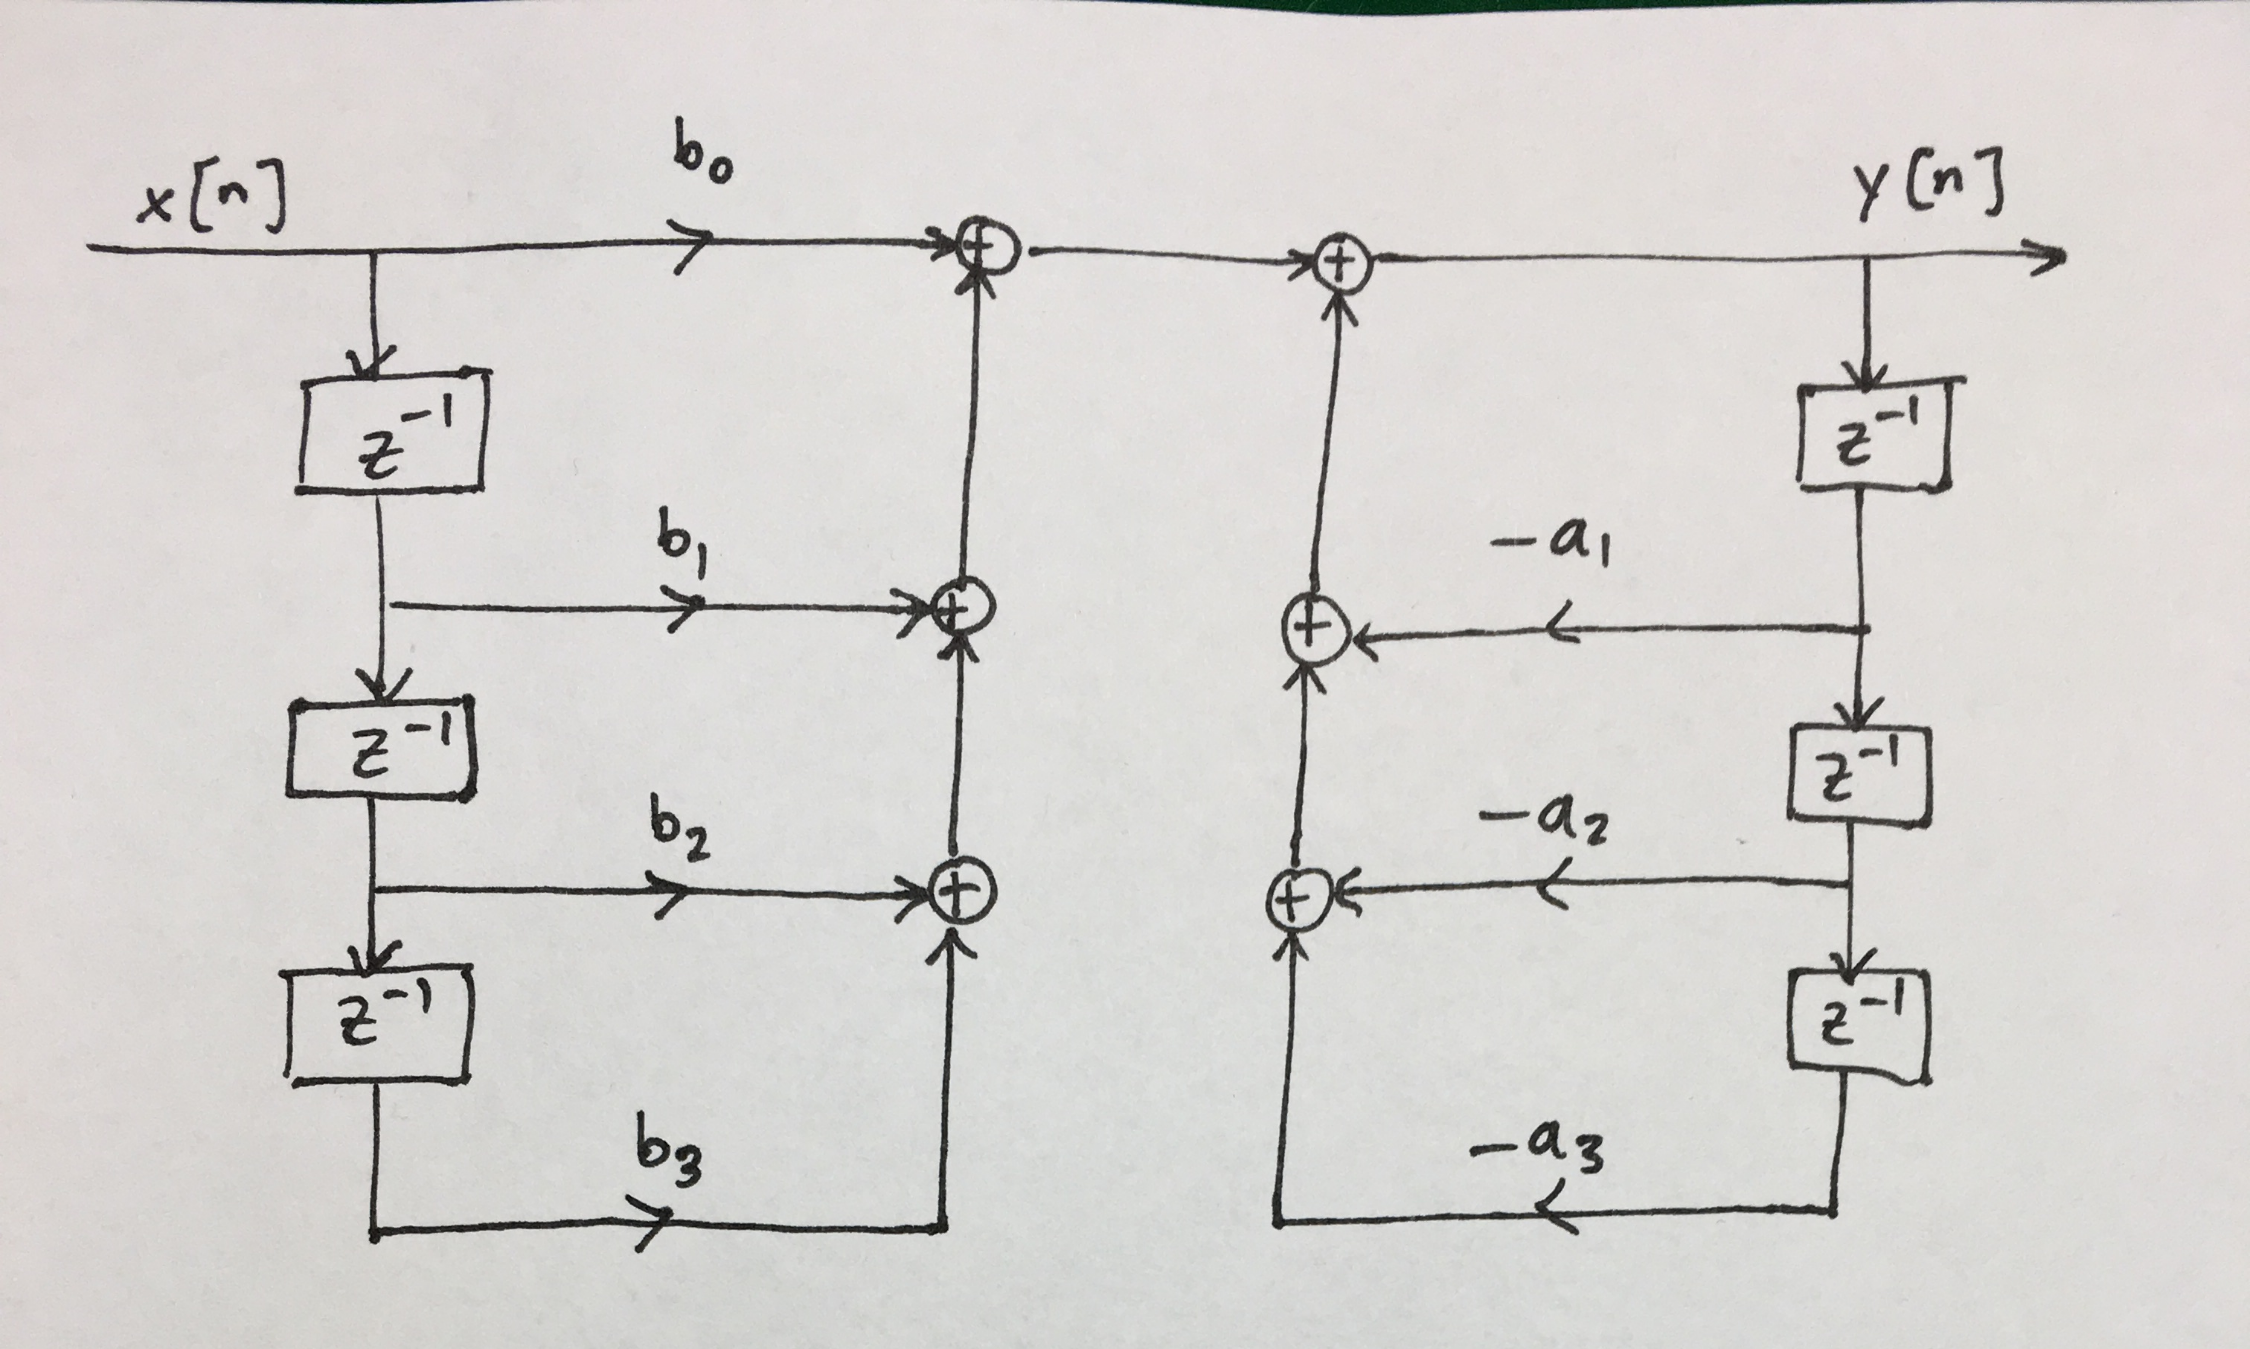 x[n] b₀ y[n]
z⁻¹ z⁻¹
b₁ -a₁
z⁻¹ z⁻¹
b₂ -a₂
z⁻¹ z⁻¹
b₃ -a₃